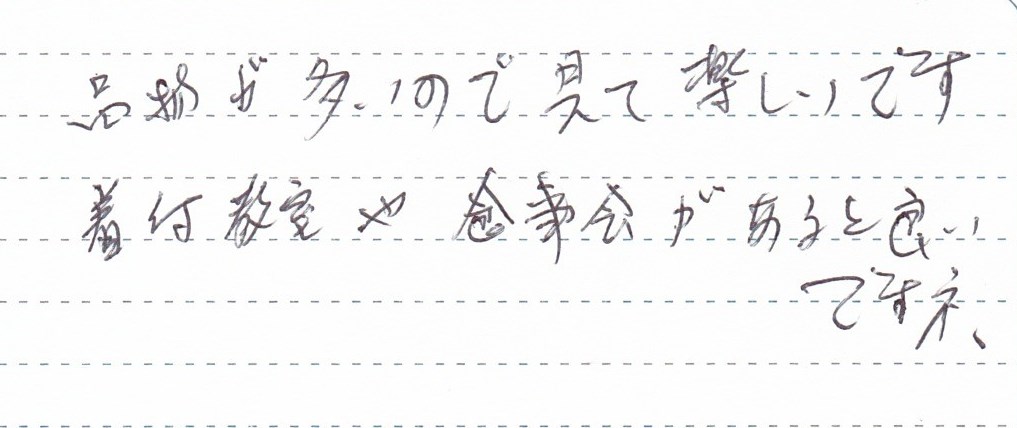 品物が多いので見て楽しいです
着付教室や食事会があると良い
ですネ、